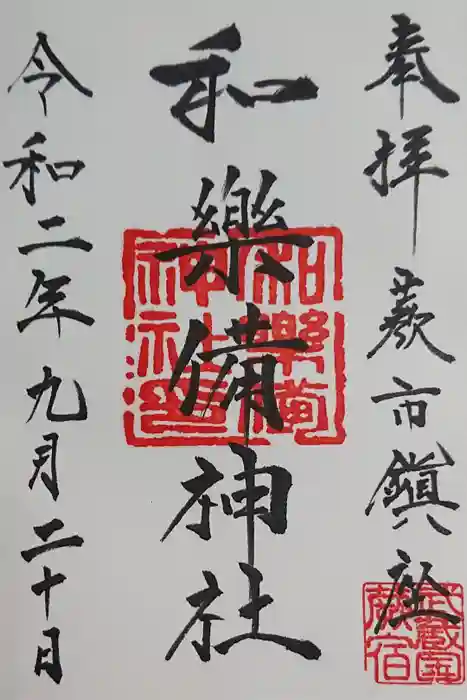 奉拝 蕨市鎮座
和樂備神社
令和二年九月二十日
和樂備神社印
武蔵国蕨宿